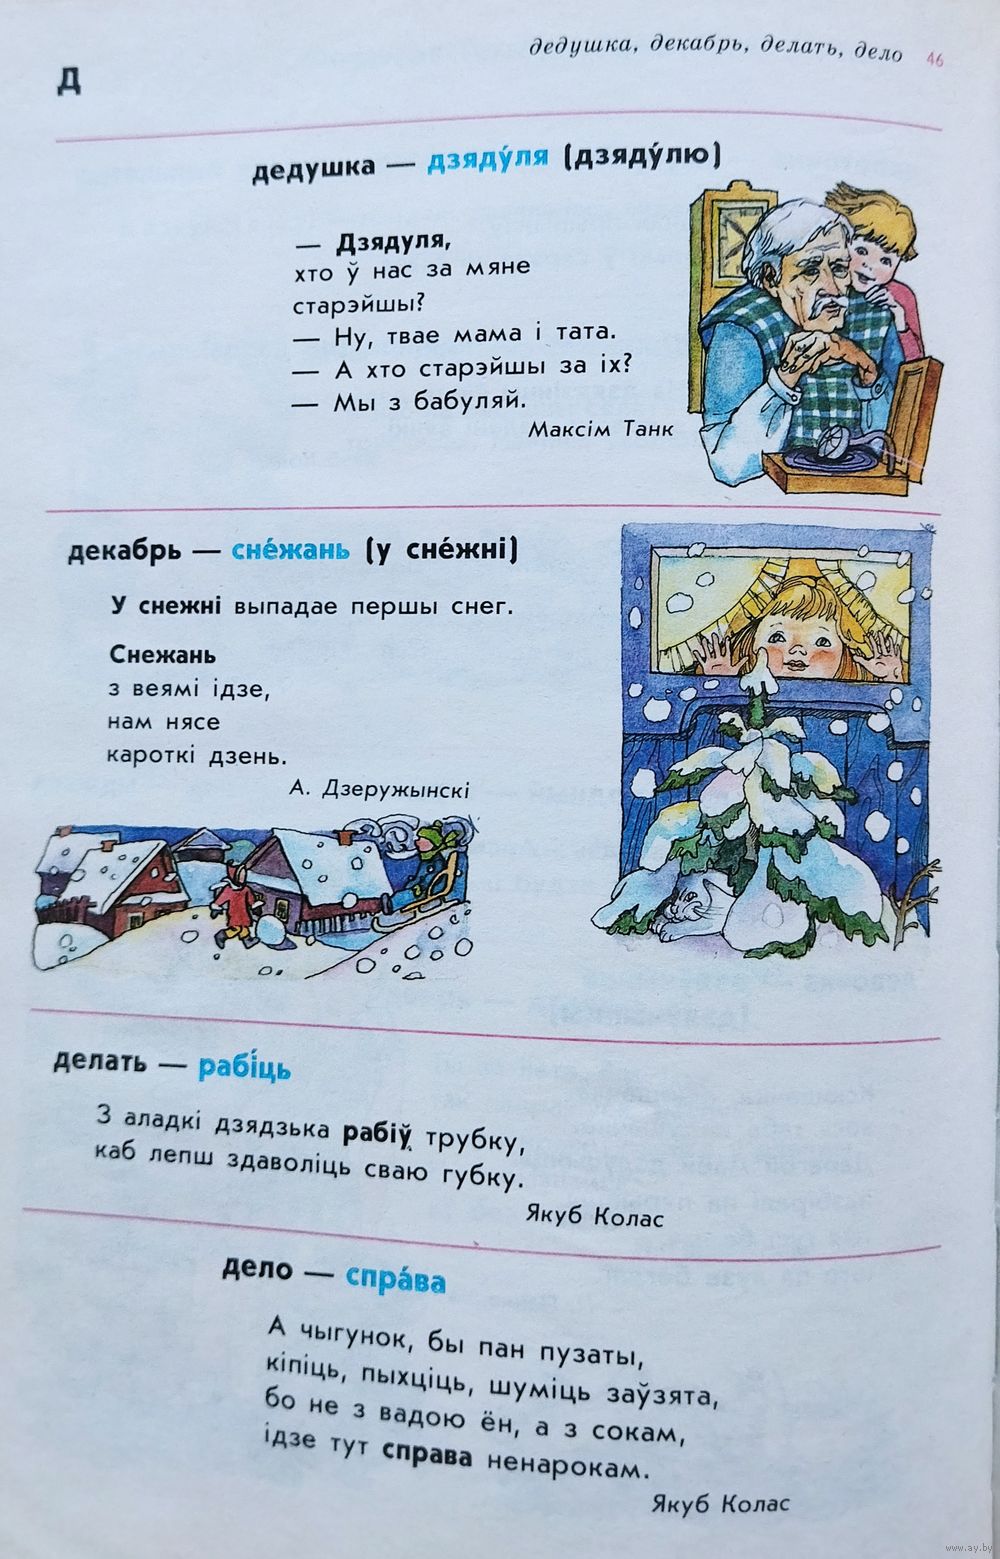 дедушка, декабрь, делать, дело 46
Д
дедушка — дзяду́ля (дзяду́лю)
— Дзядуля,
хто ў нас за мяне
старэйшы?
— Ну, твае мама і тата.
— А хто старэйшы за іх?
— Мы з бабуляй.
Максім Танк
декабрь — сне́жань (у сне́жні)
У снежні выпадае першы снег.
Снежань
з веямі ідзе,
нам нясе
кароткі дзень.
А. Дзеружынскі
делать — рабі́ць
З аладкі дзядзька рабіў трубку,
каб лепш здаволіць сваю губку.
Якуб Колас
дело — спра́ва
А чыгунок, бы пан пузаты,
кіпіць, пыхціць, шуміць заўзята,
бо не з вадою ён, а з сокам,
ідзе тут справа ненарокам.
Якуб Колас
www.ay.by